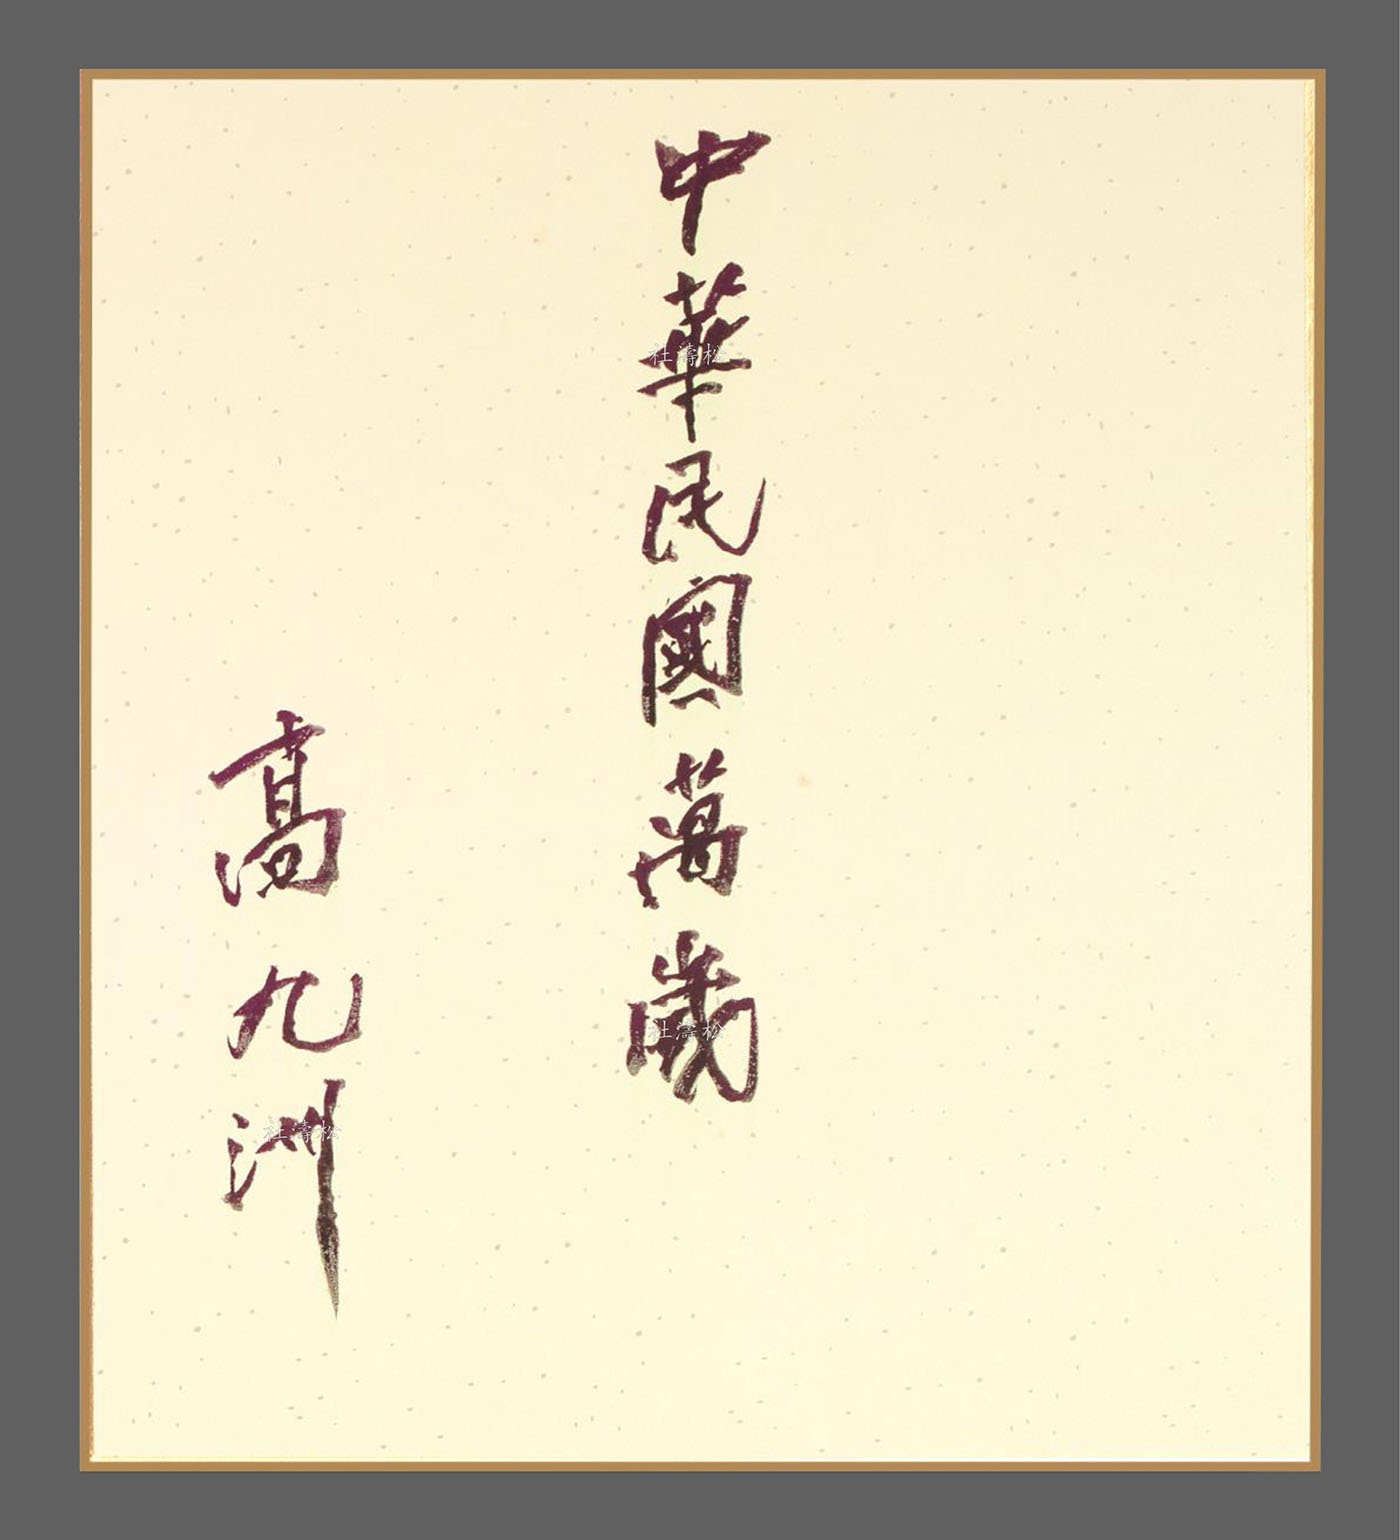 中華民國萬歲
高九洲
杜濤松
杜濤松
杜濤松